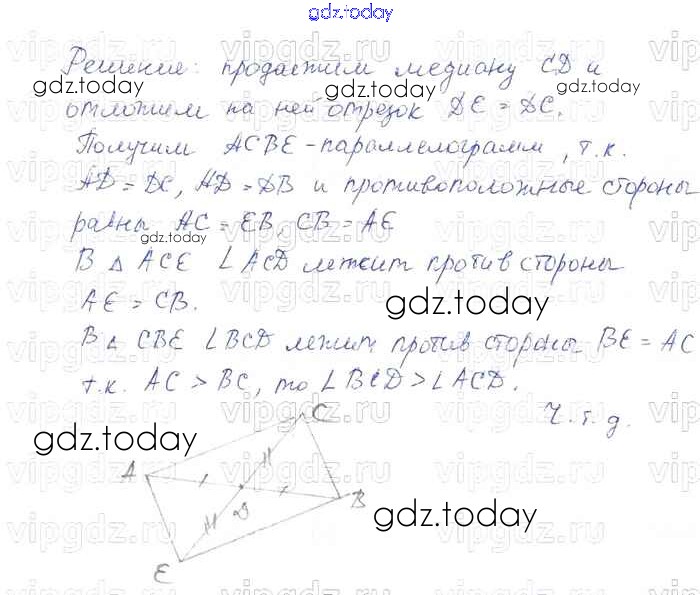 gdz.today
Решение: продолжим медиану CD и
отложим на ней отрезок DE = DC.
Получим ACBE - параллелограмм, т.к.
AD = DC, AD = DB и противоположные стороны
равны AC = EB, CB = AE
В △ ACE ∠ACD лежит против стороны
AE = CB.
В △ CBE ∠BCD лежит против стороны BE = AC
т.к. AC > BC, то ∠BCD > ∠ACD.
Ч.т.д.
C
A
D
B
E
gdz.today
gdz.today
gdz.today
gdz.today
gdz.today
gdz.today
vipgdz.ru